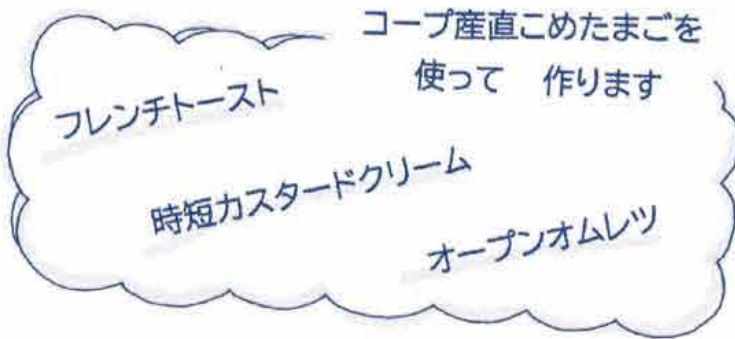 コープ産直こめたまごを
使って 作ります
フレンチトースト
時短カスタードクリーム
オープンオムレツ